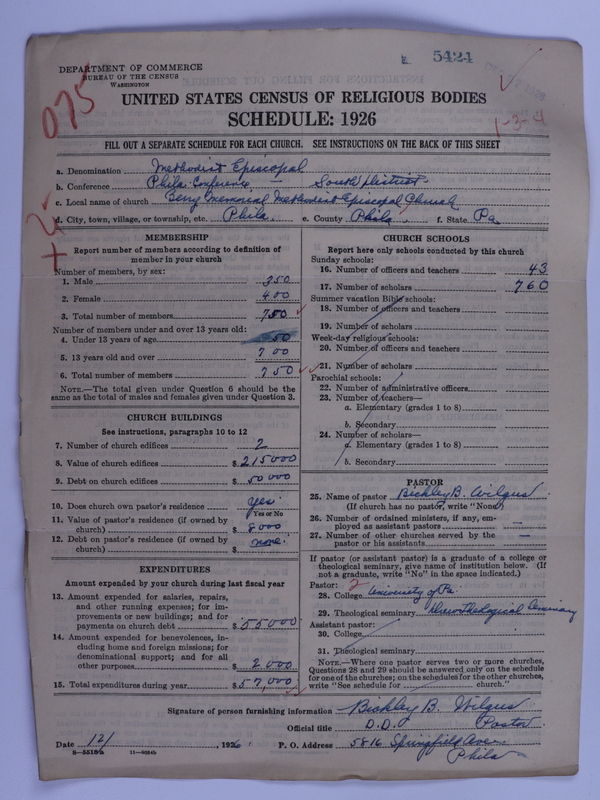 5424
DEPARTMENT OF COMMERCE
BUREAU OF THE CENSUS
WASHINGTON
075
UNITED STATES CENSUS OF RELIGIOUS BODIES
SCHEDULE: 1926
1-3-4
FILL OUT A SEPARATE SCHEDULE FOR EACH CHURCH. SEE INSTRUCTIONS ON THE BACK OF THIS SHEET
a. Denomination Methodist Episcopal
b. Conference Phila Conference — South District
c. Local name of church Berry Memorial Methodist Episcopal Church
d. City, town, village, or township, etc. Phila. e. County Phila. f. State Pa
MEMBERSHIP
Report number of members according to definition of
member in your church
Number of members, by sex:
1. Male 350
2. Female 400
3. Total number of members 750
Number of members under and over 13 years old:
4. Under 13 years of age 50
5. 13 years old and over 700
6. Total number of members 750
NOTE.—The total given under Question 6 should be the
same as the total of males and females given under Question 3.
CHURCH BUILDINGS
See instructions, paragraphs 10 to 12
7. Number of church edifices 2
8. Value of church edifices $ 215000
9. Debt on church edifices $ 50000
10. Does church own pastor's residence Yes
Yes or No
11. Value of pastor's residence (if owned by
church) $ 8000
12. Debt on pastor's residence (if owned by
church) $ none
EXPENDITURES
Amount expended by your church during last fiscal year
13. Amount expended for salaries, repairs,
and other running expenses; for im-
provements or new buildings; and for
payments on church debt $ 55000
14. Amount expended for benevolences, in-
cluding home and foreign missions; for
denominational support; and for all
other purposes $ 2000
15. Total expenditures during year $ 57,000
CHURCH SCHOOLS
Report here only schools conducted by this church
Sunday schools:
16. Number of officers and teachers 43
17. Number of scholars 760
Summer vacation Bible schools:
18. Number of officers and teachers
19. Number of scholars
Week-day religious schools:
20. Number of officers and teachers
21. Number of scholars
Parochial schools:
22. Number of administrative officers
23. Number of teachers—
a. Elementary (grades 1 to 8)
b. Secondary
24. Number of scholars—
a. Elementary (grades 1 to 8)
b. Secondary
PASTOR
25. Name of pastor Bickley B. Wilgus
(If church has no pastor, write "None)
26. Number of ordained ministers, if any, em-
ployed as assistant pastors —
27. Number of other churches served by the
pastor or his assistants —
If pastor (or assistant pastor) is a graduate of a college or
theological seminary, give name of institution below. (If
not a graduate, write "No" in the space indicated.)
Pastor:
28. College University of Pa.
29. Theological seminary Drew Theological Seminary
Assistant pastor:
30. College
31. Theological seminary
NOTE.—Where one pastor serves two or more churches,
Questions 28 and 29 should be answered only on the schedule
for one of the churches; on the schedules for the other churches,
write "See schedule for church."
Signature of person furnishing information Bickley B. Wilgus
Official title D.D. Pastor
Date 12/ 1926 P. O. Address 5816 Springfield Ave.
Phila
8—5518a 11—9024b